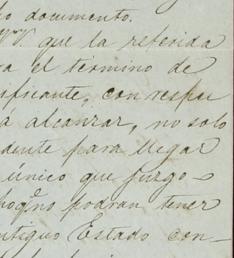 documento.
VV. que la referida
el término de
ificante, con respe
a alcanzar, no solo
dente para llegar
unico que juzgo
no podran tener
ntiguo Estado con-